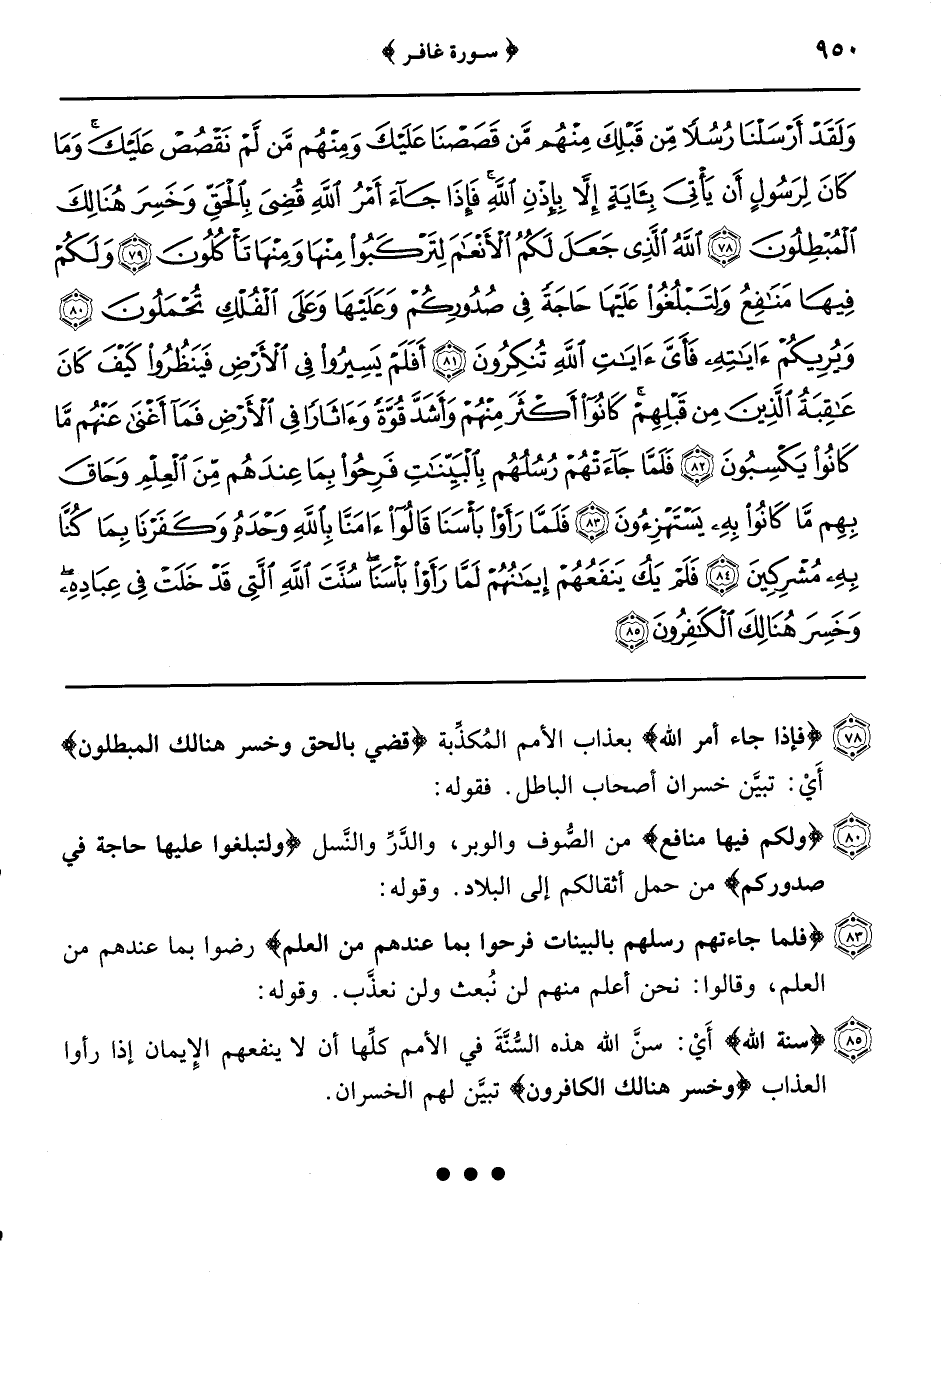 ٩٥٠
﴿ سورة غافر ﴾
وَلَقَدْ أَرْسَلْنَا رُسُلًا مِّن قَبْلِكَ مِنْهُم مَّن قَصَصْنَا عَلَيْكَ وَمِنْهُم مَّن لَّمْ نَقْصُصْ عَلَيْكَ ۗ وَمَا
كَانَ لِرَسُولٍ أَن يَأْتِىَ بِـَٔايَةٍ إِلَّا بِإِذْنِ ٱللَّهِ ۚ فَإِذَا جَآءَ أَمْرُ ٱللَّهِ قُضِىَ بِٱلْحَقِّ وَخَسِرَ هُنَالِكَ
ٱلْمُبْطِلُونَ ﴿٧٨﴾ ٱللَّهُ ٱلَّذِى جَعَلَ لَكُمُ ٱلْأَنْعَـٰمَ لِتَرْكَبُوا۟ مِنْهَا وَمِنْهَا تَأْكُلُونَ ﴿٧٩﴾ وَلَكُمْ
فِيهَا مَنَـٰفِعُ وَلِتَبْلُغُوا۟ عَلَيْهَا حَاجَةً فِى صُدُورِكُمْ وَعَلَيْهَا وَعَلَى ٱلْفُلْكِ تُحْمَلُونَ ﴿٨٠﴾
وَيُرِيكُمْ ءَايَـٰتِهِۦ فَأَىَّ ءَايَـٰتِ ٱللَّهِ تُنكِرُونَ ﴿٨١﴾ أَفَلَمْ يَسِيرُوا۟ فِى ٱلْأَرْضِ فَيَنظُرُوا۟ كَيْفَ كَانَ
عَـٰقِبَةُ ٱلَّذِينَ مِن قَبْلِهِمْ ۚ كَانُوٓا۟ أَكْثَرَ مِنْهُمْ وَأَشَدَّ قُوَّةً وَءَاثَارًا فِى ٱلْأَرْضِ فَمَآ أَغْنَىٰ عَنْهُم مَّا
كَانُوا۟ يَكْسِبُونَ ﴿٨٢﴾ فَلَمَّا جَآءَتْهُمْ رُسُلُهُم بِٱلْبَيِّنَـٰتِ فَرِحُوا۟ بِمَا عِندَهُم مِّنَ ٱلْعِلْمِ وَحَاقَ
بِهِم مَّا كَانُوا۟ بِهِۦ يَسْتَهْزِءُونَ ﴿٨٣﴾ فَلَمَّا رَأَوْا۟ بَأْسَنَا قَالُوٓا۟ ءَامَنَّا بِٱللَّهِ وَحْدَهُۥ وَكَفَرْنَا بِمَا كُنَّا
بِهِۦ مُشْرِكِينَ ﴿٨٤﴾ فَلَمْ يَكُ يَنفَعُهُمْ إِيمَـٰنُهُمْ لَمَّا رَأَوْا۟ بَأْسَنَا ۖ سُنَّتَ ٱللَّهِ ٱلَّتِى قَدْ خَلَتْ فِى عِبَادِهِۦ ۖ
وَخَسِرَ هُنَالِكَ ٱلْكَـٰفِرُونَ ﴿٨٥﴾
﴿٧٨﴾ ﴿فإذا جاء أمر الله﴾ بعذاب الأمم المُكذِّبة ﴿قضي بالحق وخسر هنالك المبطلون﴾
أَيْ: تبيَّن خسران أصحاب الباطل. فقوله:
﴿٨٠﴾ ﴿ولكم فيها منافع﴾ من الصُّوف والوبر، والدَّرِّ والنَّسل ﴿ولتبلغوا عليها حاجة في
صدوركم﴾ من حمل أثقالكم إلى البلاد. وقوله:
﴿٨٣﴾ ﴿فلما جاءتهم رسلهم بالبينات فرحوا بما عندهم من العلم﴾ رضوا بما عندهم من
العلم، وقالوا: نحن أعلم منهم لن نُبعث ولن نعذَّب. وقوله:
﴿٨٥﴾ ﴿سنة الله﴾ أَيْ: سنَّ الله هذه السُّنَّةَ في الأمم كلِّها أن لا ينفعهم الإيمان إذا رأوا
العذاب ﴿وخسر هنالك الكافرون﴾ تبيَّن لهم الخسران.